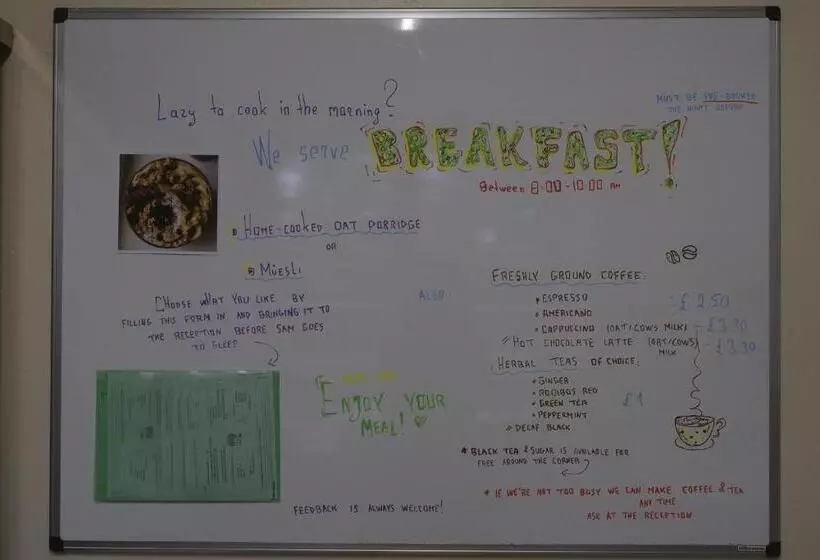 Lazy to cook in the morning?
MUST BE PRE-BOOKED
THE NIGHT BEFORE
We serve BREAKFAST!
Between 8:00-10:00 AM
HOME-COOKED OAT PORRIDGE
OR
MÜESLI
CHOOSE WHAT YOU LIKE BY
FILLING THIS FORM IN AND BRINGING IT TO
THE RECEPTION BEFORE 5AM GOES
TO SLEEP
ALSO
FRESHLY GROUND COFFEE:
ESPRESSO £2.50
AMERICANO
CAPPUCCINO (OAT/COWS MILK) - £3.30
HOT CHOCOLATE LATTE (OAT/COWS) - £3.30
MILK
HERBAL TEAS OF CHOICE:
GINGER
ROOIBOS RED
GREEN TEA £1
PEPPERMINT
DECAF BLACK
ENJOY YOUR
MEAL!
* BLACK TEA & SUGAR IS AVAILABLE FOR
FREE AROUND THE CORNER
* IF WE'RE NOT TOO BUSY WE CAN MAKE COFFEE & TEA
ANY TIME
ASK AT THE RECEPTION
FEEDBACK IS ALWAYS WELCOME!